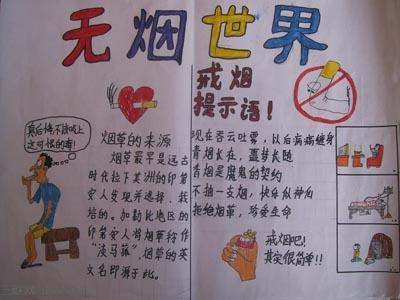 无烟世界
戒烟
提示语!
真后悔不该吸上
这可恨的毒!
烟草的来源
烟草最早是远古
时代拉丁美洲的印第
安人发现并选择、栽
培的。加勒比地区的印
第安人将烟草称作
“淡马菰”,烟草的英
文名即源于此。
现在吞云吐雾,以后病痛缠身
青烟长在,噩梦长随
青烟是魔鬼的契约
不抽一支烟,快乐似神仙
拒绝烟草,珍爱生命
戒烟吧!
其实很简单!!